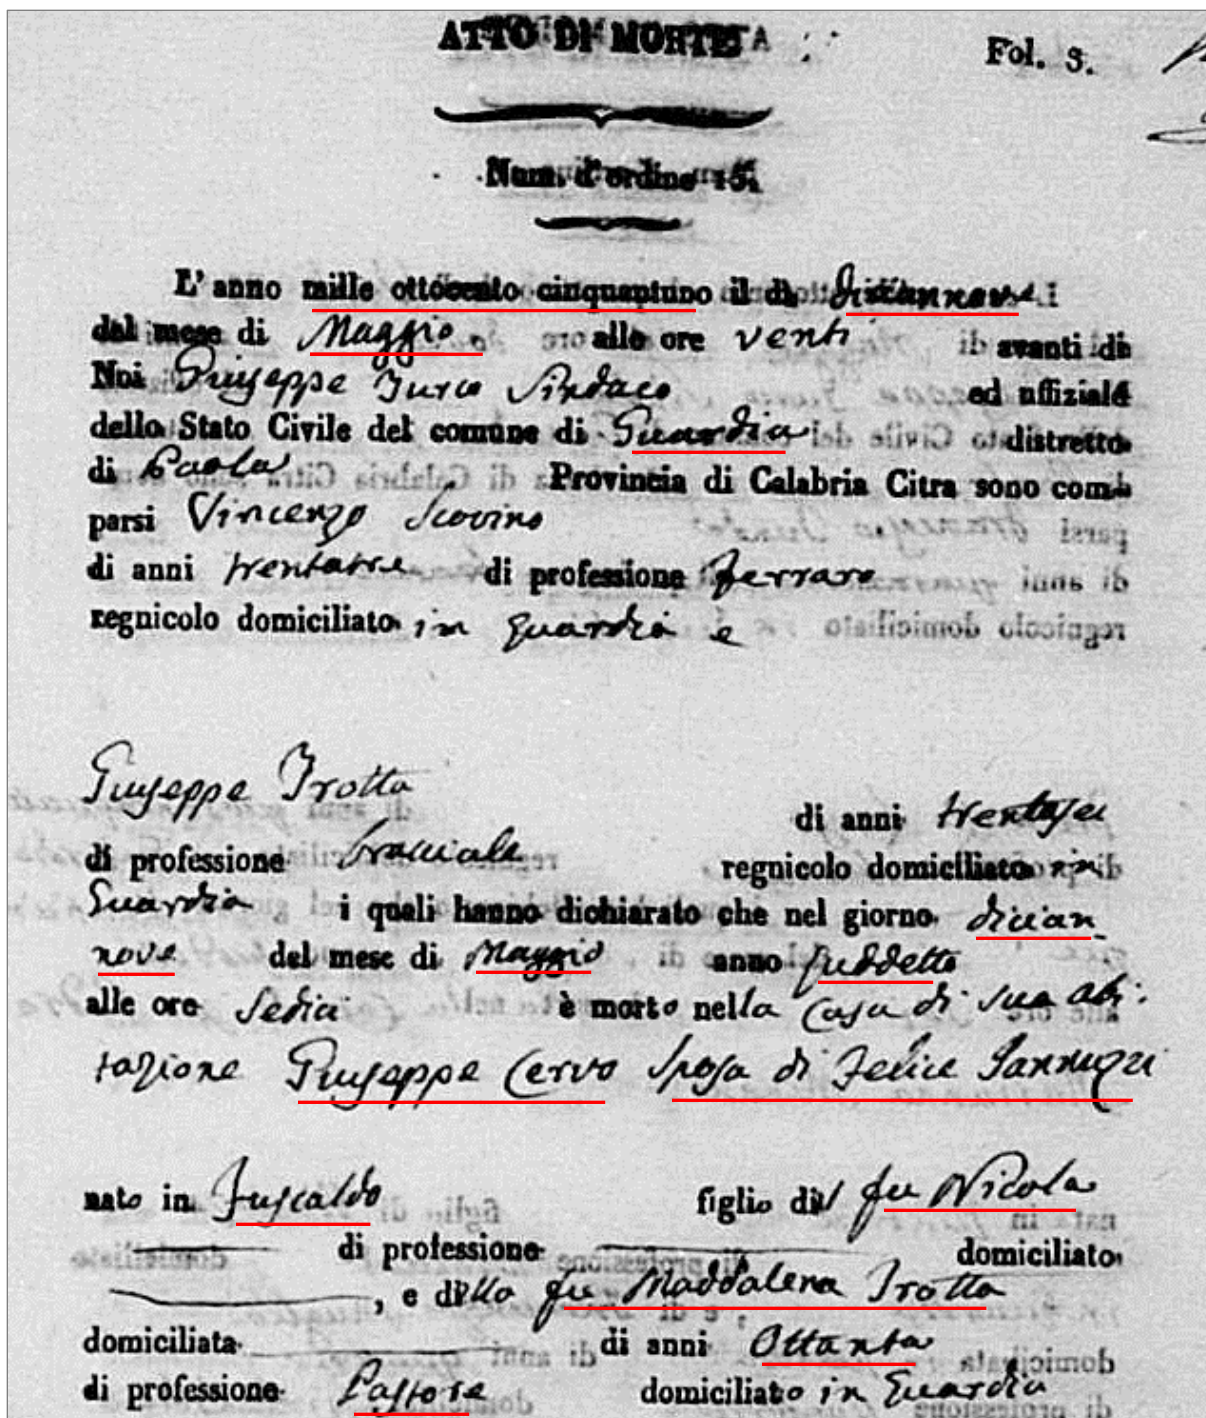 ATTO DI MORTE
Fol. 3.
Num. d'ordine 15.
L' anno mille ottocento cinquantuno il dì diciannove
del mese di Maggio alle ore venti avanti di
Noi Giuseppe Turco Sindaco ed uffiziale
dello Stato Civile del comune di Guardia distretto
di Paola Provincia di Calabria Citra sono com-
parsi Vincenzo Scovino
di anni trentatre di professione Ferraro
regnicolo domiciliato in Guardia e
Giuseppe Trotta di anni trentasei
di professione bracciale regnicolo domiciliato in
Guardia i quali hanno dichiarato che nel giorno dician
nove del mese di Maggio anno suddetto
alle ore Sedici è morto nella Casa di sua abi-
tazione Giuseppe Cervo Sposo di Felice Iannuzzi
nato in Fuscaldo figlio del fu Nicola
di professione domiciliato
, e della fu Maddalena Trotta
domiciliata di anni Ottanta
di professione Pastore domiciliato in Guardia